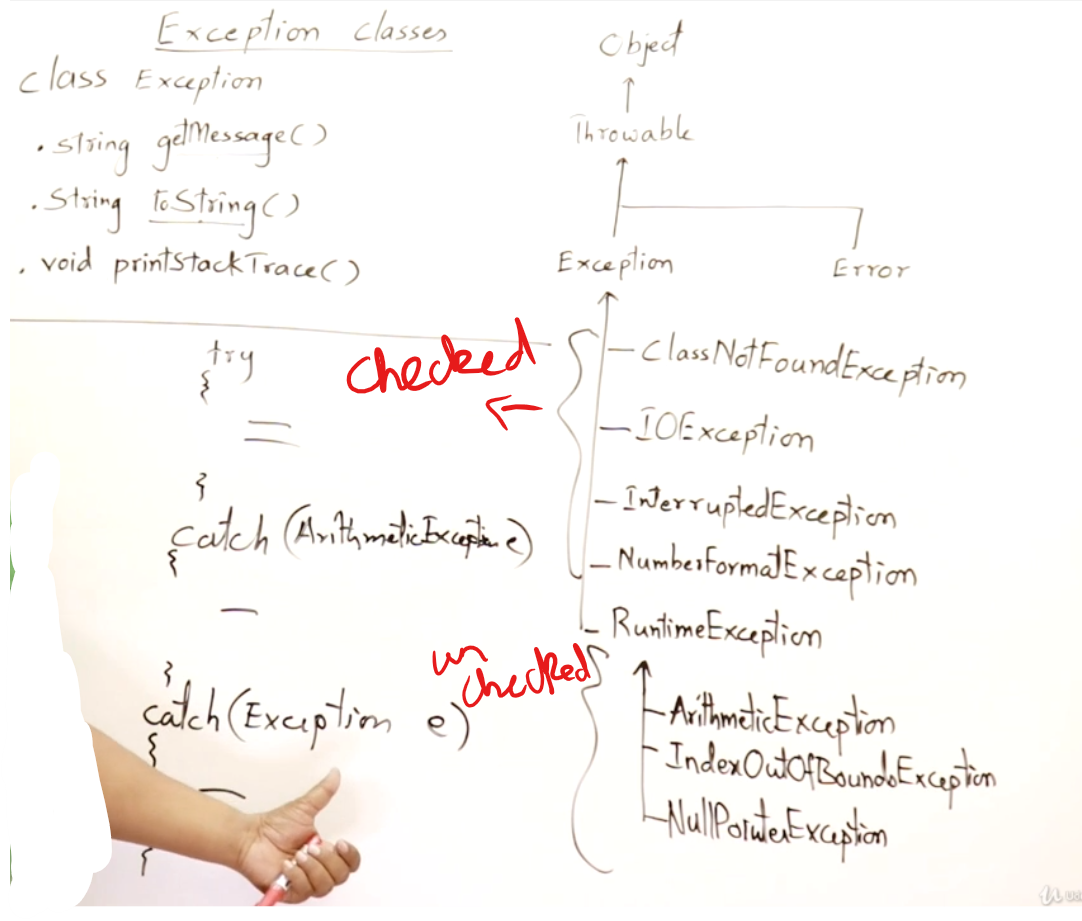 Exception classes
class Exception
. string getMessage()
. String toString()
. void printStackTrace()
try
{
}
catch (ArithmeticException e)
{
}
catch(Exception e)
{
}
Object
Throwable
Exception
Error
checked
ClassNotFoundException
IOException
InterruptedException
NumberFormatException
RuntimeException
un
checked
ArithmeticException
IndexOutOfBoundsException
NullPointerException